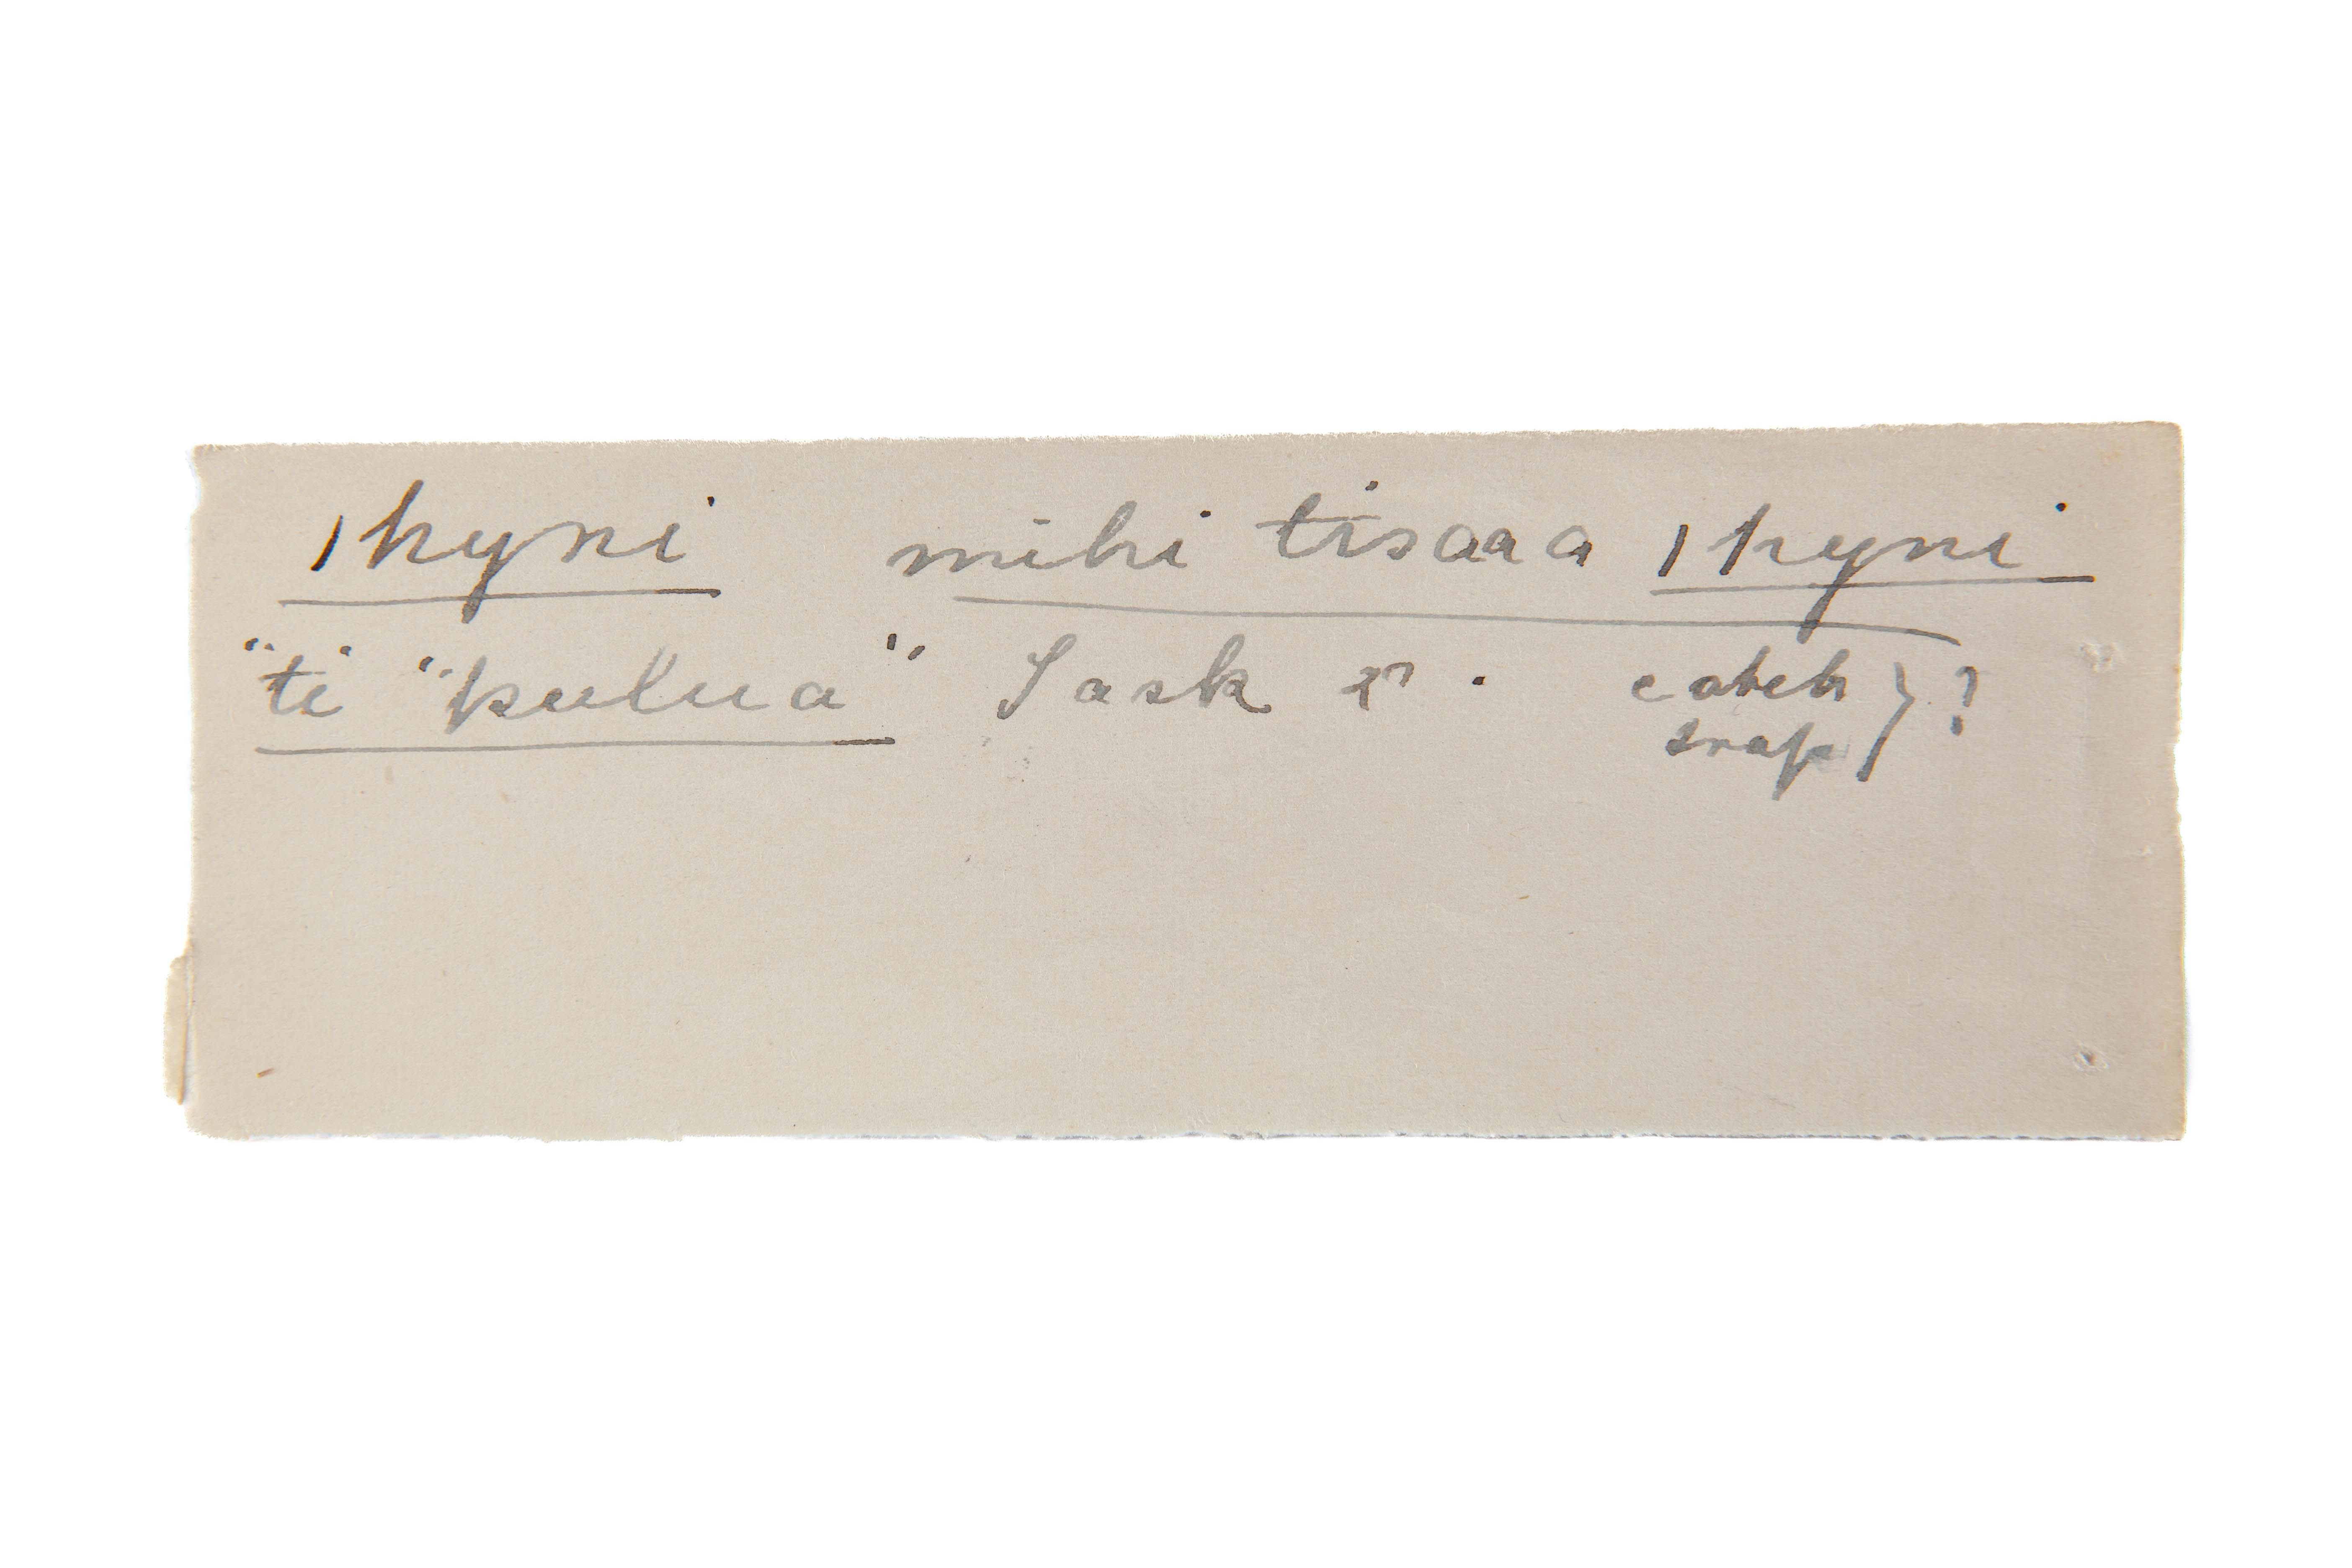 ǀhyni mihi tisaaa ǀhyni
"ti "kulua" Sask catch } ?
snap